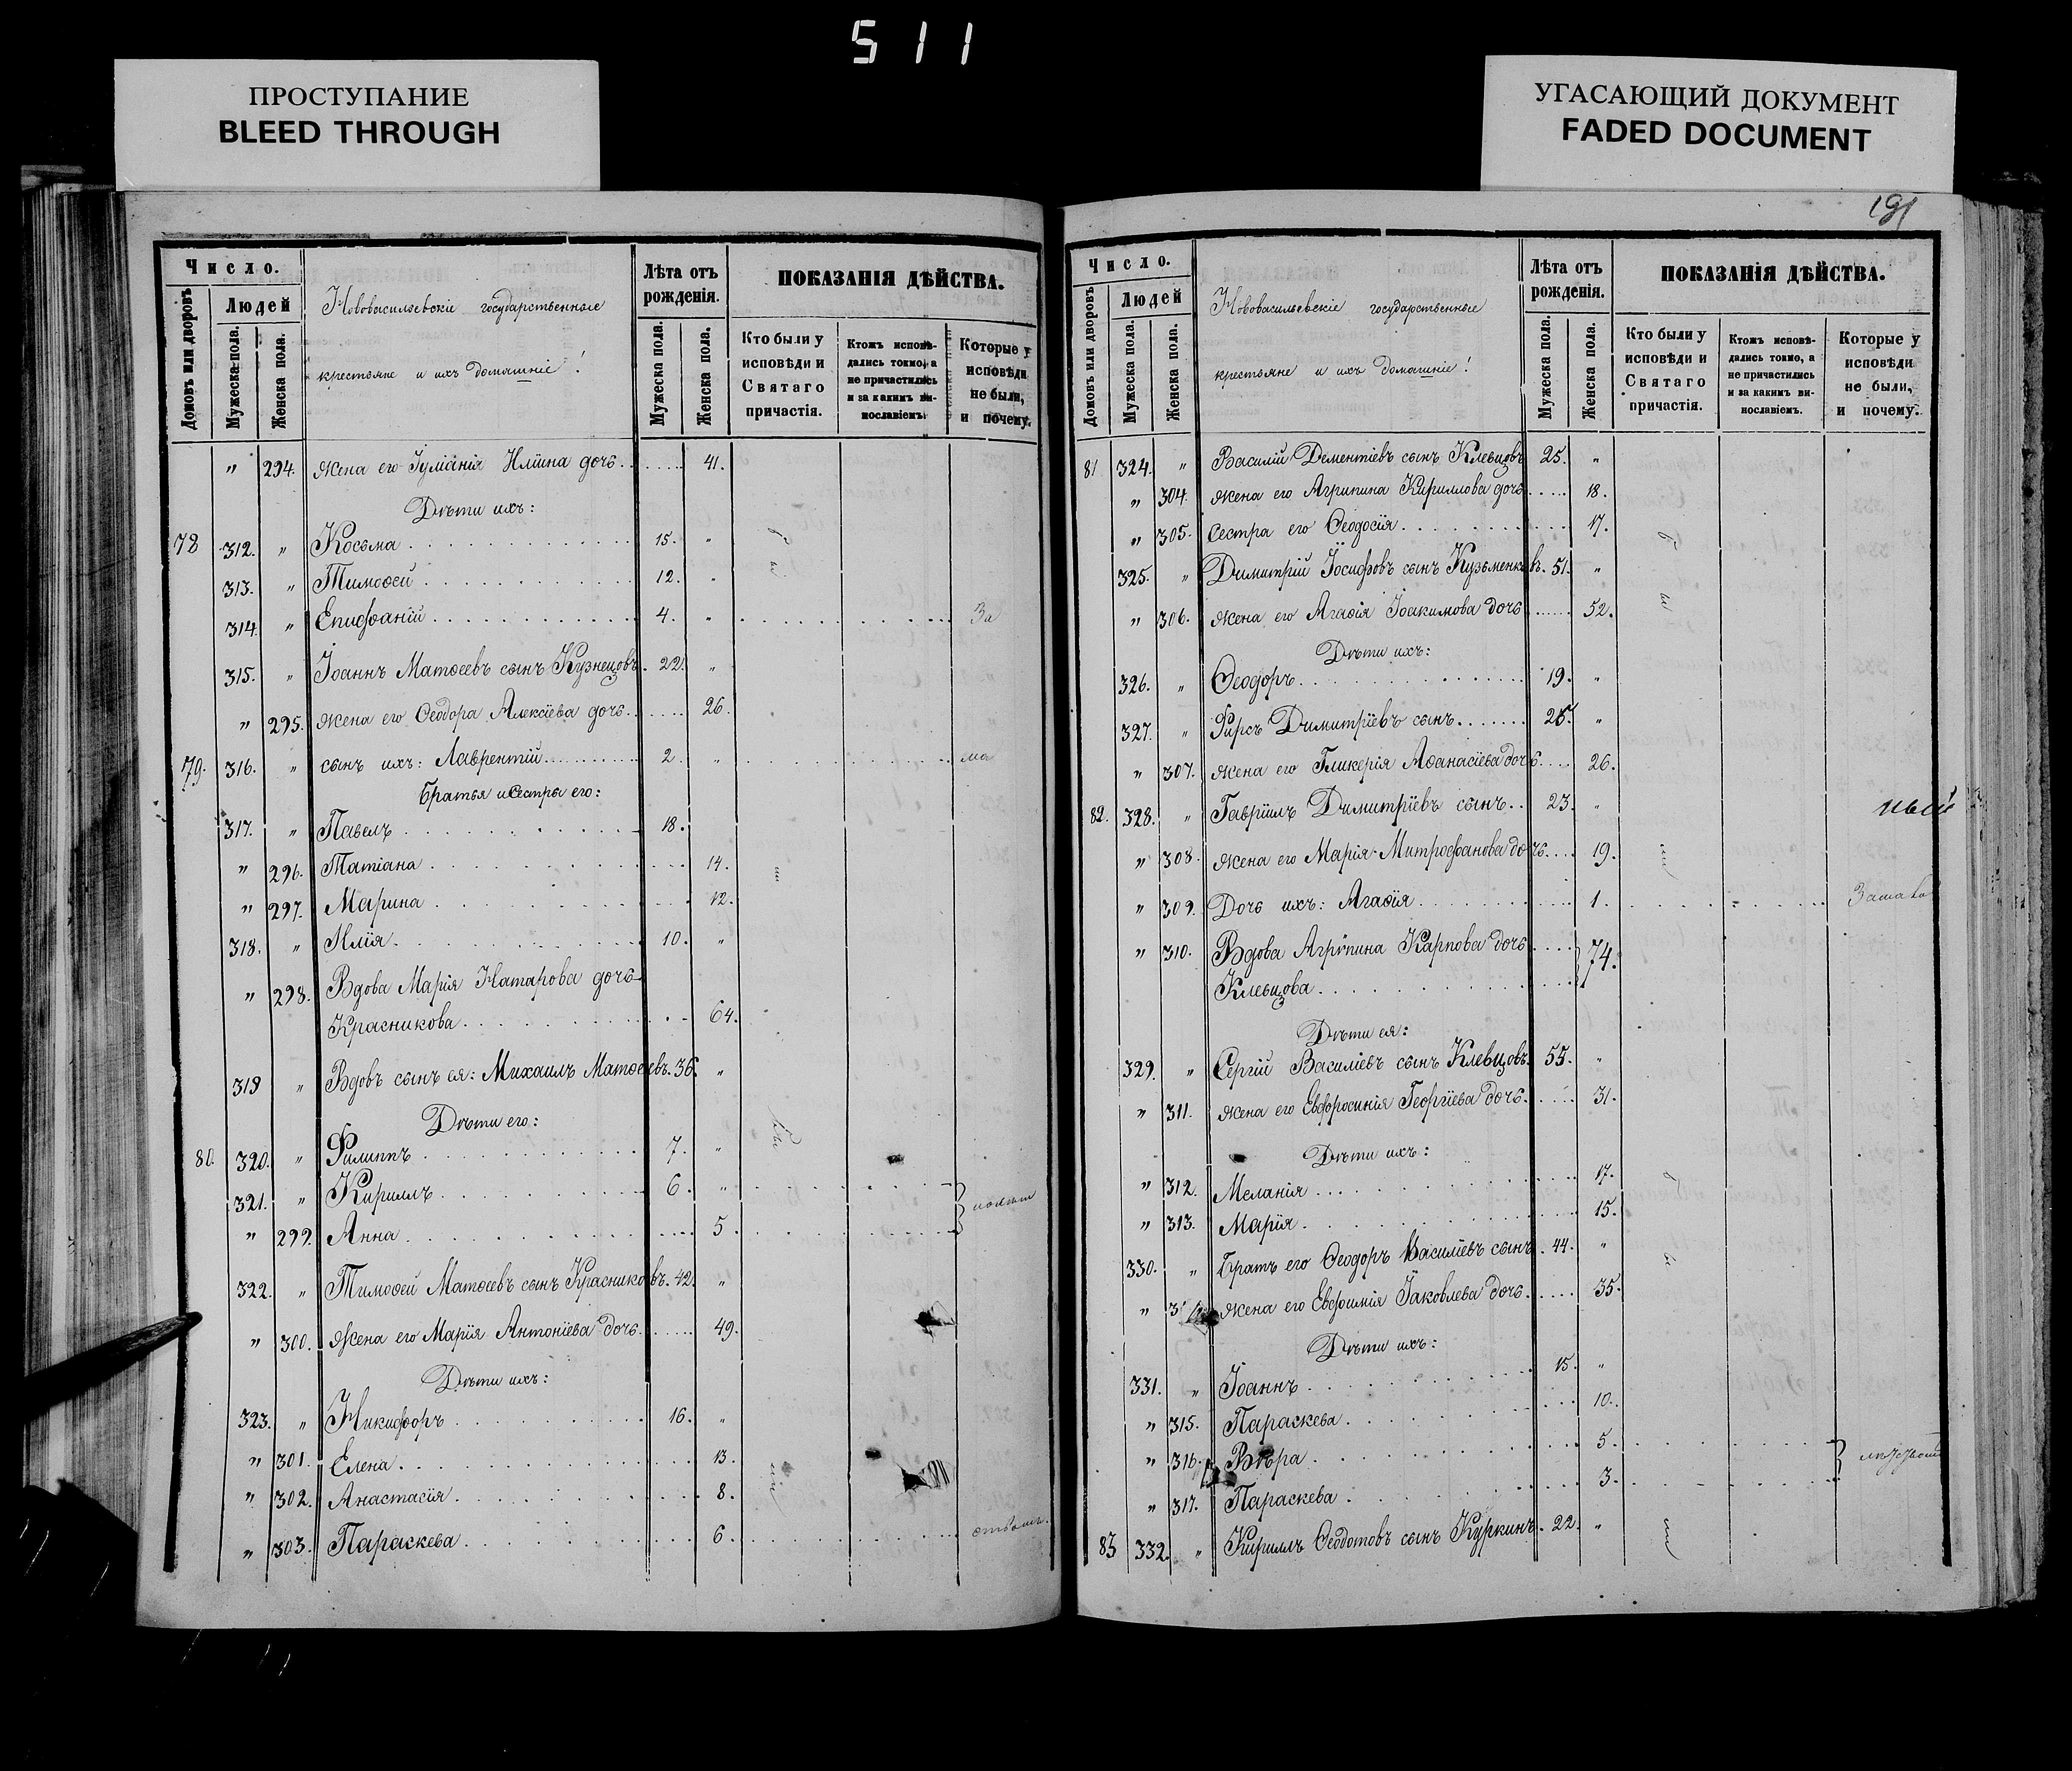 511
ПРОСТУПАНИЕ
BLEED THROUGH
УГАСАЮЩИЙ ДОКУМЕНТ
FADED DOCUMENT
191
Число.
Домовъ или дворовъ
Людей
Мужеска пола.
Женска пола.
Нововасильевскіе государственные
крестьяне и ихъ домашніе!
Лѣта отъ рожденія.
Мужеска пола.
Женска пола.
ПОКАЗАНІЯ ДѢЙСТВА.
Кто были у исповѣди и Святаго причастія.
Ктожъ исповѣдались токмо, а не причастились и за какимъ винословіемъ.
Которые у исповѣди не были, и почему.
" 294. жена его Іуліанія Иліина дочь 41.
Дѣти ихъ:
78 312. " Косьма 15. "
313. " Тимоѳей 12. "
314. " Епифаній 4. " За
315. " Іоаннъ Матѳеевъ сынъ Кузнецовъ 22. "
" 295. жена его Ѳеодора Алексіева дочь 26.
79. 316. " сынъ ихъ: Лаврентій 2. " ма
Братья и Сестры его:
317. " Павелъ 18.
" 296. Татіана 14.
" 297. Марина 12.
318. " Илія 10. "
" 298. Вдова Марія Натарова дочь
Красникова 64.
319 " Вдовъ сынъ ея: Михаилъ Матѳеевъ 36. "
Дѣти его:
80. 320. " Филиппъ 7. "
321. " Кириллъ 6. "
" 299. Анна 5.
322. " Тимоѳей Матѳеевъ сынъ Красниковъ. 42. "
" 300. Жена его Марія Антоніева дочь 49.
Дѣти ихъ:
323. " Никифоръ 16. "
" 301. Елена 13.
" 302. Анастасія 8.
" 303. Параскева 6.
Число.
Домовъ или дворовъ
Людей
Мужеска пола.
Женска пола.
Нововасильевскіе государственные
крестьяне и ихъ домашніе!
Лѣта отъ рожденія.
Мужеска пола.
Женска пола.
ПОКАЗАНІЯ ДѢЙСТВА.
Кто были у исповѣди и Святаго причастія.
Ктожъ исповѣдались токмо, а не причастились и за какимъ винословіемъ.
Которые у исповѣди не были, и почему.
81 324. " Василій Дементіевъ сынъ Клевцовъ 25. "
" 304. жена его Агрипина Кириллова дочь 18.
" 305. Сестра его Ѳеодосія 17.
325. " Димитрій Іосифовъ сынъ Кузьменковъ. 51. "
" 306. жена его Агаѳія Іоакимова дочь 52.
Дѣти ихъ:
326. " Ѳеодоръ 19. "
327. " Фирсъ Димитріевъ сынъ 25. "
" 307. жена его Гликерія Аѳанасіева дочь 26.
82. 328. " Гавріилъ Димитріевъ сынъ 23. "
ный
" 308. жена его Марія Митрофанова дочь 19.
" 309. Дочь ихъ: Агаѳія 1.
" 310. Вдова Агрипина Карпова дочь
Клевцова 74.
Дѣти ея:
329. " Сергій Василіевъ сынъ Клевцовъ 55. "
" 311. жена его Евфросинія Георгіева дочь 31.
Дѣти ихъ:
" 312. Меланія 17.
" 313. Марія 15.
330. " Братъ его Ѳеодоръ Василіевъ сынъ 44. "
" жена его Евфимія Іаковлева дочь 35.
Дѣти ихъ:
331. " Іоаннъ 15. "
" 315. Параскева 10.
" 316. Вѣра 5.
" 317. Параскева 3.
83 332. " Кириллъ Ѳеодотовъ сынъ Куркинъ 22. "